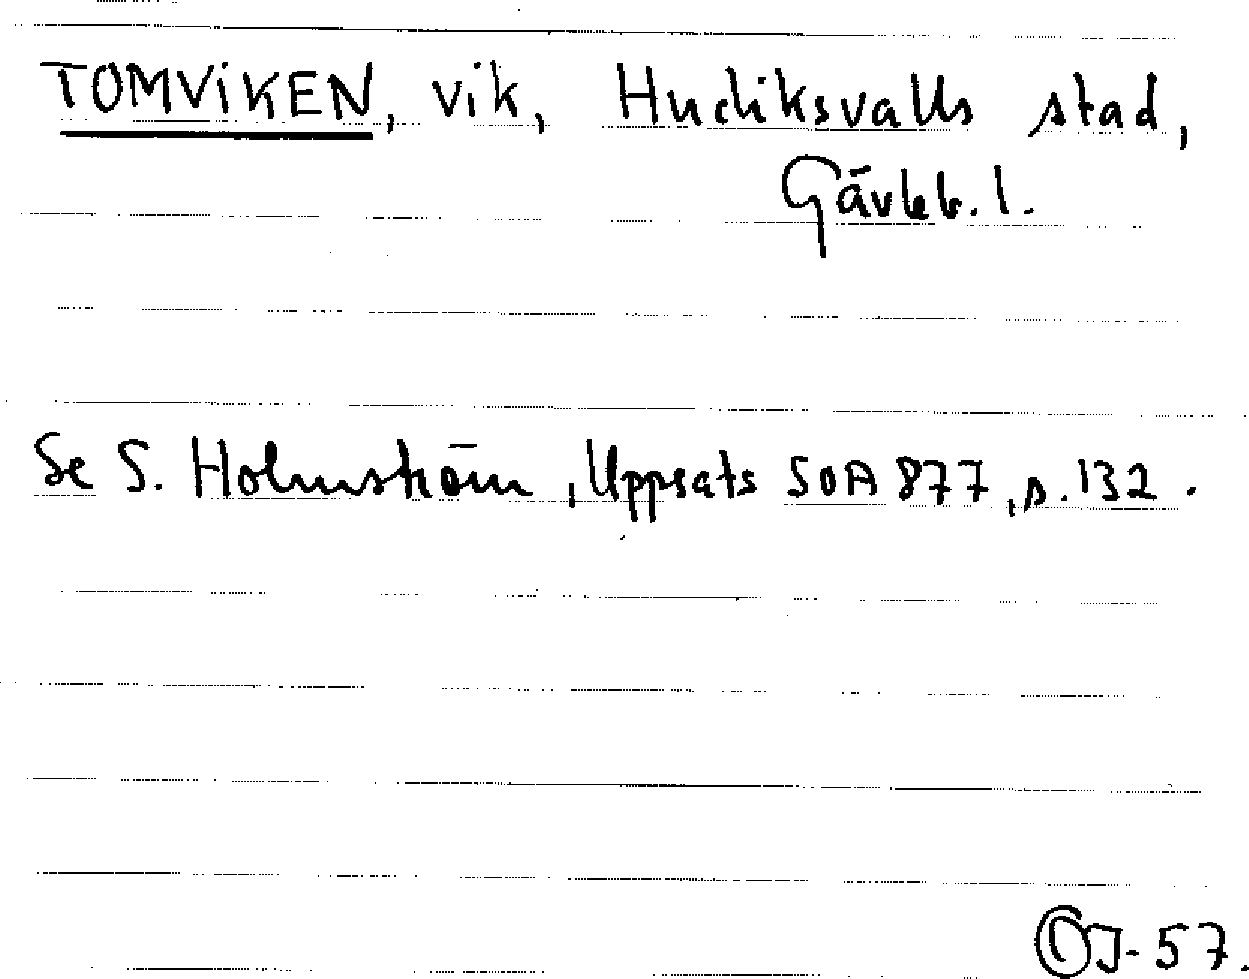 TOMVIKEN, vik, Hudiksvalls stad,
Gävleb. l.
Se S. Holmström, Uppsats SOA 877, s. 132.
OJ-57.